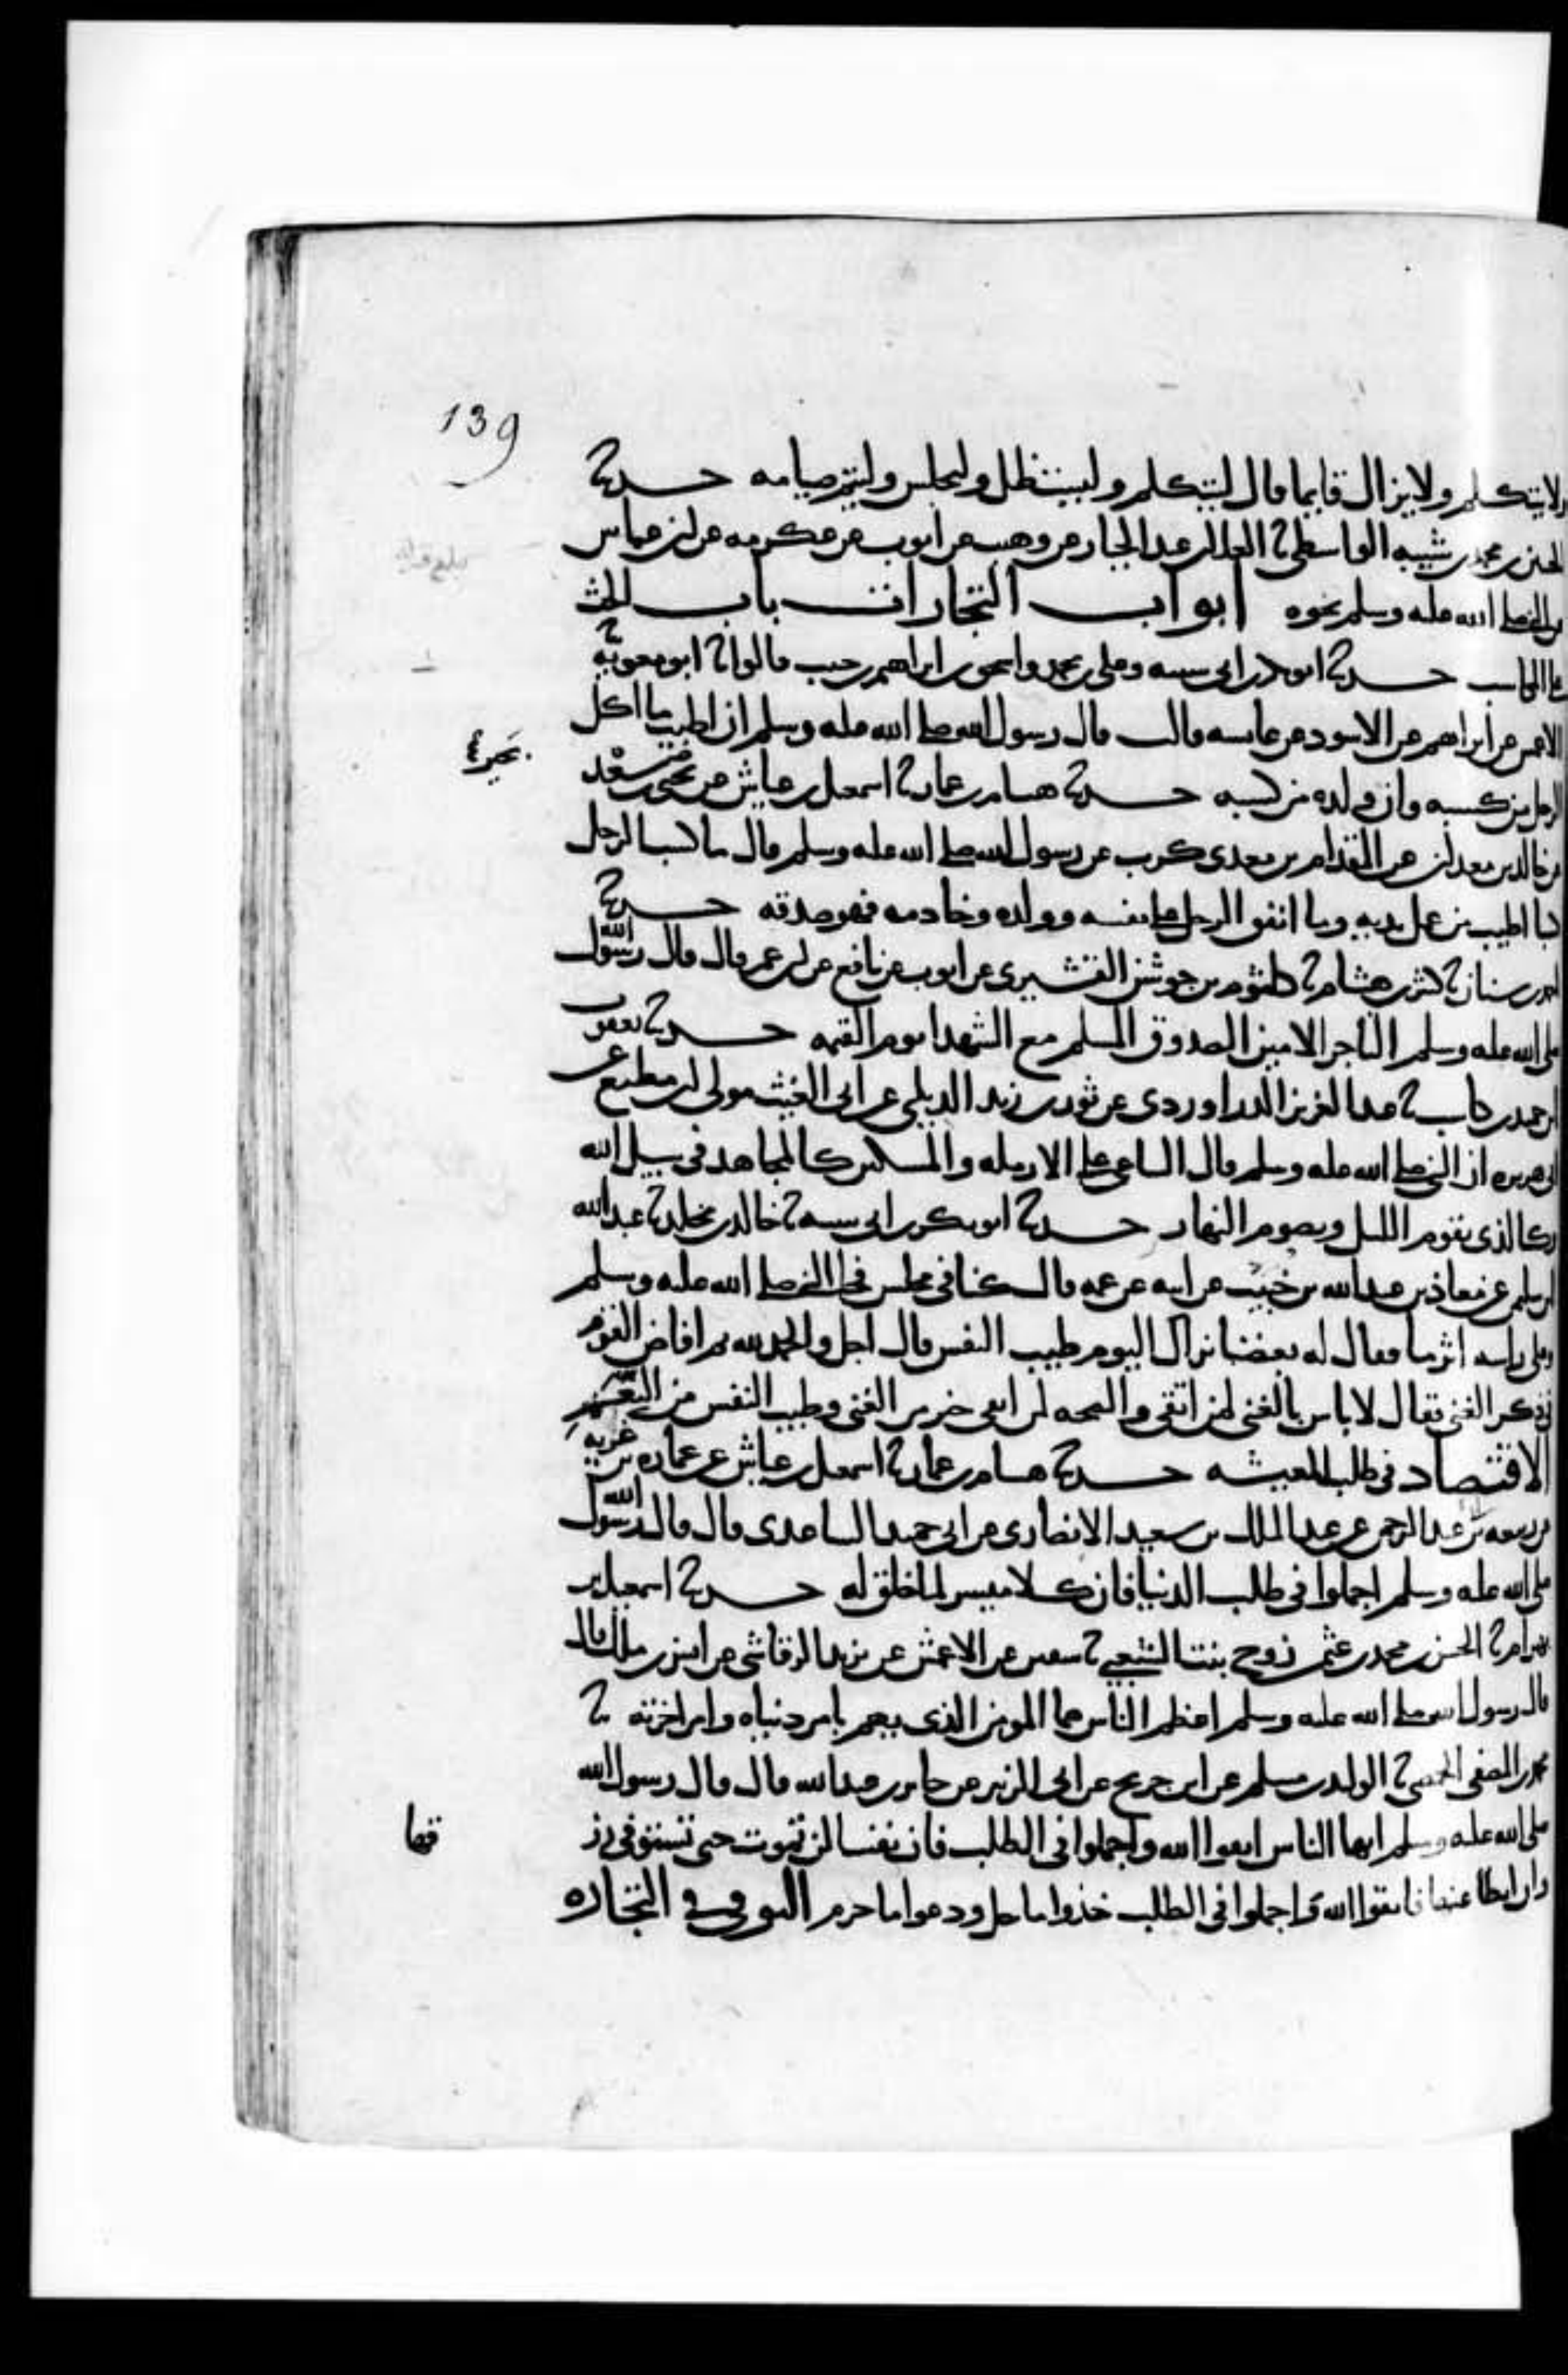 139
ولا يتكلم ولا يزال قايما قال ليتكلم وليستظل وليجلس وليتم صيامه حدثنا
الحسين بن محمد بن شيبه الواسطي ثنا العلا بن عبد الجبار عن وهيب عن ايوب عن عكرمه عن ابن عباس
عن النبي صلى الله عليه وسلم نحوه ابواب التجارات باب الحث
على المكاسب حدثنا ابو بكر بن ابي شيبه وعلي بن محمد واسحق بن ابراهيم بن حبيب قالوا ثنا ابو معوية ثنا
الاعمش عن ابراهيم عن الاسود عن عايشه قالت قال رسول الله صلى الله عليه وسلم ان اطيب ما اكل
الرجل من كسبه وان ولده من كسبه حدثنا هشام بن عمار ثنا اسمعيل بن عياش عن بحير بن سعد
بحير
عن خالد بن معدان عن المقدام بن معدي كرب عن رسول الله صلى الله عليه وسلم قال ما كسب الرجل
كسبا اطيب من عمل يديه وما انفق الرجل على نفسه وولده وخادمه فهو صدقه حدثنا
احمد بن سنان ثنا كثير بن هشام ثنا كلثوم بن جوشن القشيري عن ايوب عن نافع عن ابن عمر قال قال رسول الله
صلى الله عليه وسلم التاجر الامين الصدوق المسلم مع الشهدا يوم القيمه حدثنا يعقوب
بن حميد بن كاسب ثنا عبد العزيز الدراوردي عن ثور بن زيد الديلي عن ابي الغيث مولى ابن مطيع عن
ابي هريره ان النبي صلى الله عليه وسلم قال الساعي على الارمله والمسكين كالمجاهد في سبيل الله
وكالذي يقوم الليل ويصوم النهار حدثنا ابو بكر بن ابي شيبه ثنا خالد بن مخلد ثنا عبد الله
بن سليمن عن معاذ بن عبد الله بن خبيب عن ابيه عن عمه قال كنا في مجلس فجا النبي صلى الله عليه وسلم
وعلى راسه اثر ما فقال له بعضنا نراك اليوم طيب النفس قال اجل والحمد لله ثم افاض القوم
في ذكر الغنى فقال لا باس بالغنى لمن اتقى والصحه لمن اتقى خير من الغنى وطيب النفس من النعيم
الاقتصاد في طلب المعيشه حدثنا هشام بن عمار ثنا اسمعيل بن عياش عن عماره بن غزيه
عن ربيعه بن عبد الرحمن عن عبد الملك بن سعيد الانصاري عن ابي حميد الساعدي قال قال رسول الله
صلى الله عليه وسلم اجملوا في طلب الدنيا فان كلا ميسر لما خلق له حدثنا اسمعيل بن
بهرام ثنا الحسن بن محمد بن عثمن زوج بنت الشعبي ثنا سفين عن الاعمش عن يزيد الرقاشي عن انس بن ملك قال
قال رسول الله صلى الله عليه وسلم اعظم الناس هما المومن الذي يهم بامر دنياه وامر اخرته ثنا
محمد بن المصفى الحمصي ثنا الوليد بن مسلم عن ابن جريج عن ابي الزبير عن جابر بن عبد الله قال قال رسول الله
صلى الله عليه وسلم ايها الناس اتقوا الله واجملوا في الطلب فان نفسا لن تموت حتى تستوفي رز
قها
وان ابطا عنها فاتقوا الله واجملوا في الطلب خذوا ما حل ودعوا ما حرم التوقي في التجاره